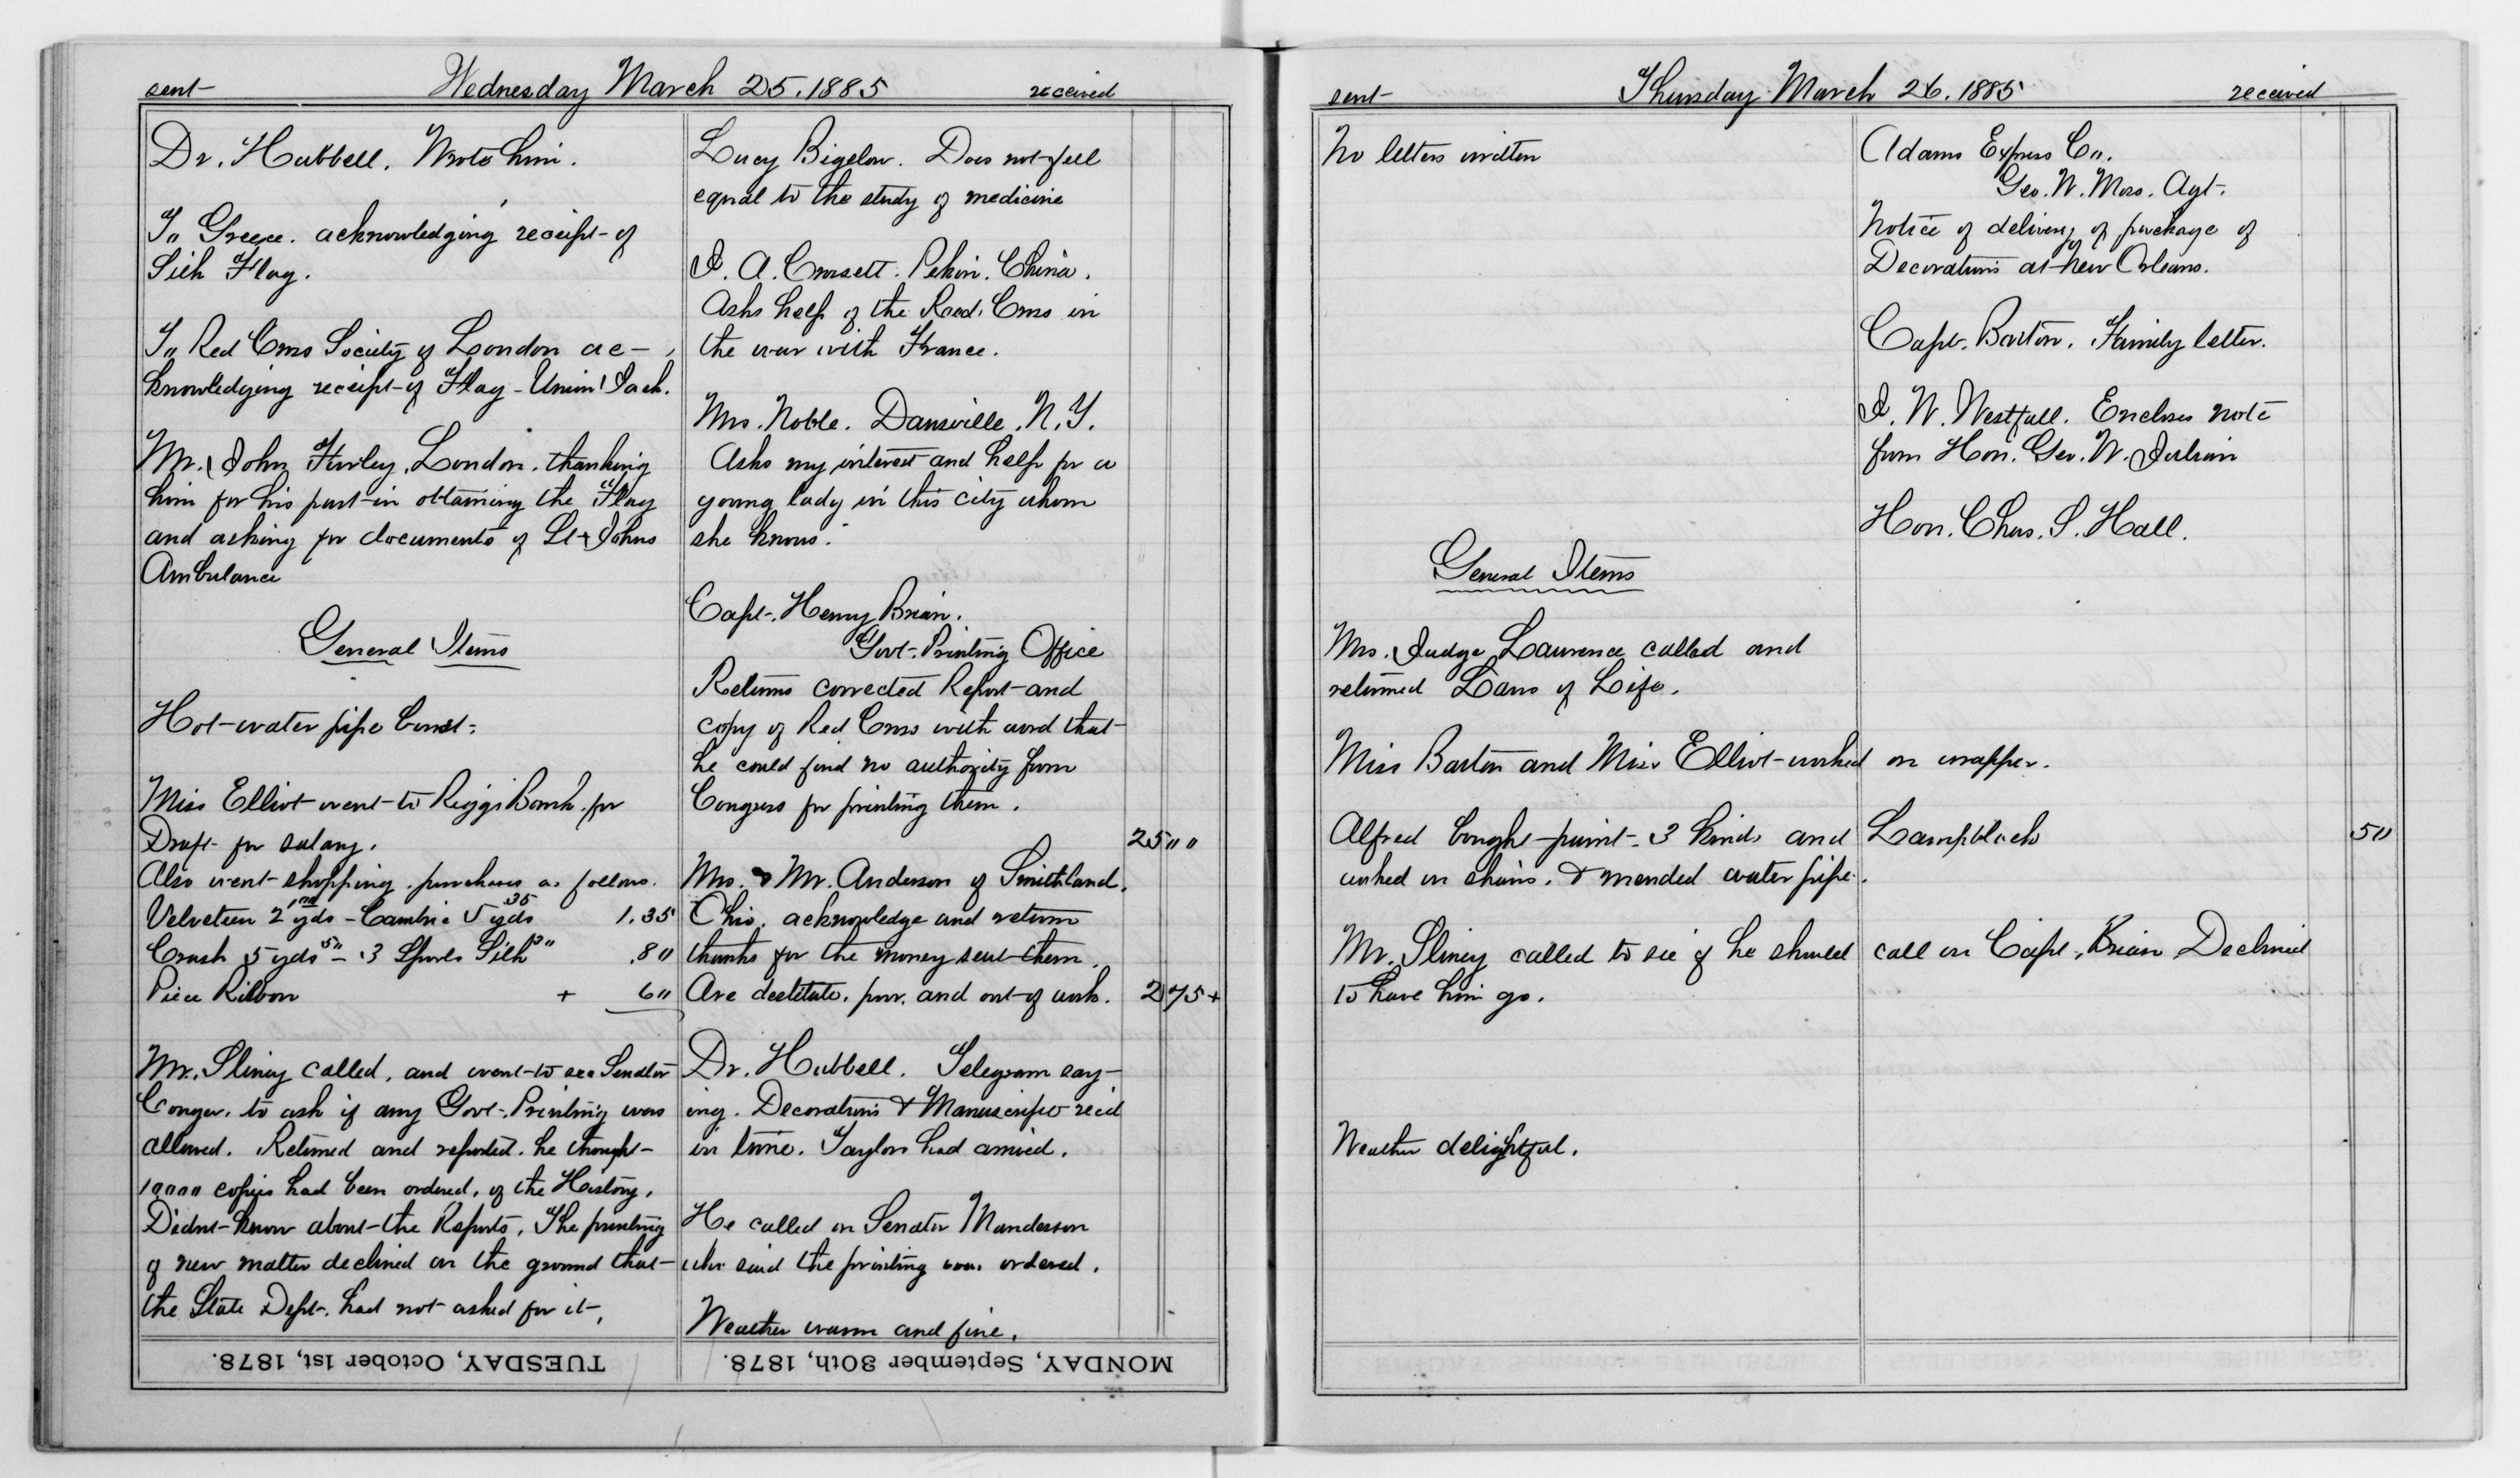 sent- Wednesday March 25. 1885 received
Dr. Hubbell. Wrote him.
To Greece. acknowledging receipt- of
Silk Flag.
To Red Cross Society of London ac-
knowledging receipt- of Flag - Union Jack.
Mr. John Furley. London. thanking
him for his part- in obtaining the Flag
and asking for documents of St Johns
Ambulance
General Items
Hot- water pipe burst-.
Miss Elliot went- to Riggs Bank for
Draft- for salary.
Also went- shopping. purchases as follows.
Velveteen 2 yds - Cambric 5 yds 35 1.35
Crash 5 yds 50 - 3 Spools Silk 30 .80
Piece Ribbon + 60
Mr. Sliney called, and went- to see Senator
Conger, to ask if any Govt-. Printing was
allowed. Returned and reported. he thought-
10000 copies had been ordered, of the History.
Didnt- know about- the Reports. The printing
of new matter declined on the ground that-
the State Dept-. had not asked for it-.
Lucy Bigelow. Does not- feel
equal to the study of medicine
J. A. Crossett. Pekin. China.
Asks help of the Red. Cross in
the war with France.
Mrs. Noble. Dansville. N.Y.
Asks my interest and help for a
young lady in this city whom
she knows.
Capt-. Henry Brian.
Govt-. Printing Office
Returns corrected Report- and
copy of Red Cross with word that-
he could find no authority from
Congress for printing them.
2500
Mrs. & Mr. Anderson of Smithland.
Ohio. acknowledge and return
thanks for the money sent- them.
Are destitute. poor. and out- of work. 275+
Dr. Hubbell. Telegram say-
ing. Decorations & Manuscript rec'd
in time. Taylor had arrived.
He called on Senator Manderson
who said the printing was ordered.
Weather warm and fine.
TUESDAY, October 1st, 1878.
MONDAY, September 30th, 1878.
sent- Thursday March 26. 1885 received
No letters written
Adams Express Co.
Geo. W. Moss. Agt-.
Notice of delivery of package of
Decorations at- New Orleans.
Capt-. Barton. Family letter.
J. W. Westfall. Encloses note
from Hon. Geo. W. Julian
Hon. Chas. S. Hall.
General Items
Mrs. Judge Laurence called and
returned Laws of Life.
Miss Barton and Miss Elliot- worked on wrapper.
Alfred bought- paint- 3 kinds and Lampblack 50
worked on chairs. & mended water pipe.
Mr. Sliney called to see if he should call on Capt-. Brian Declined
to have him go.
Weather delightful.